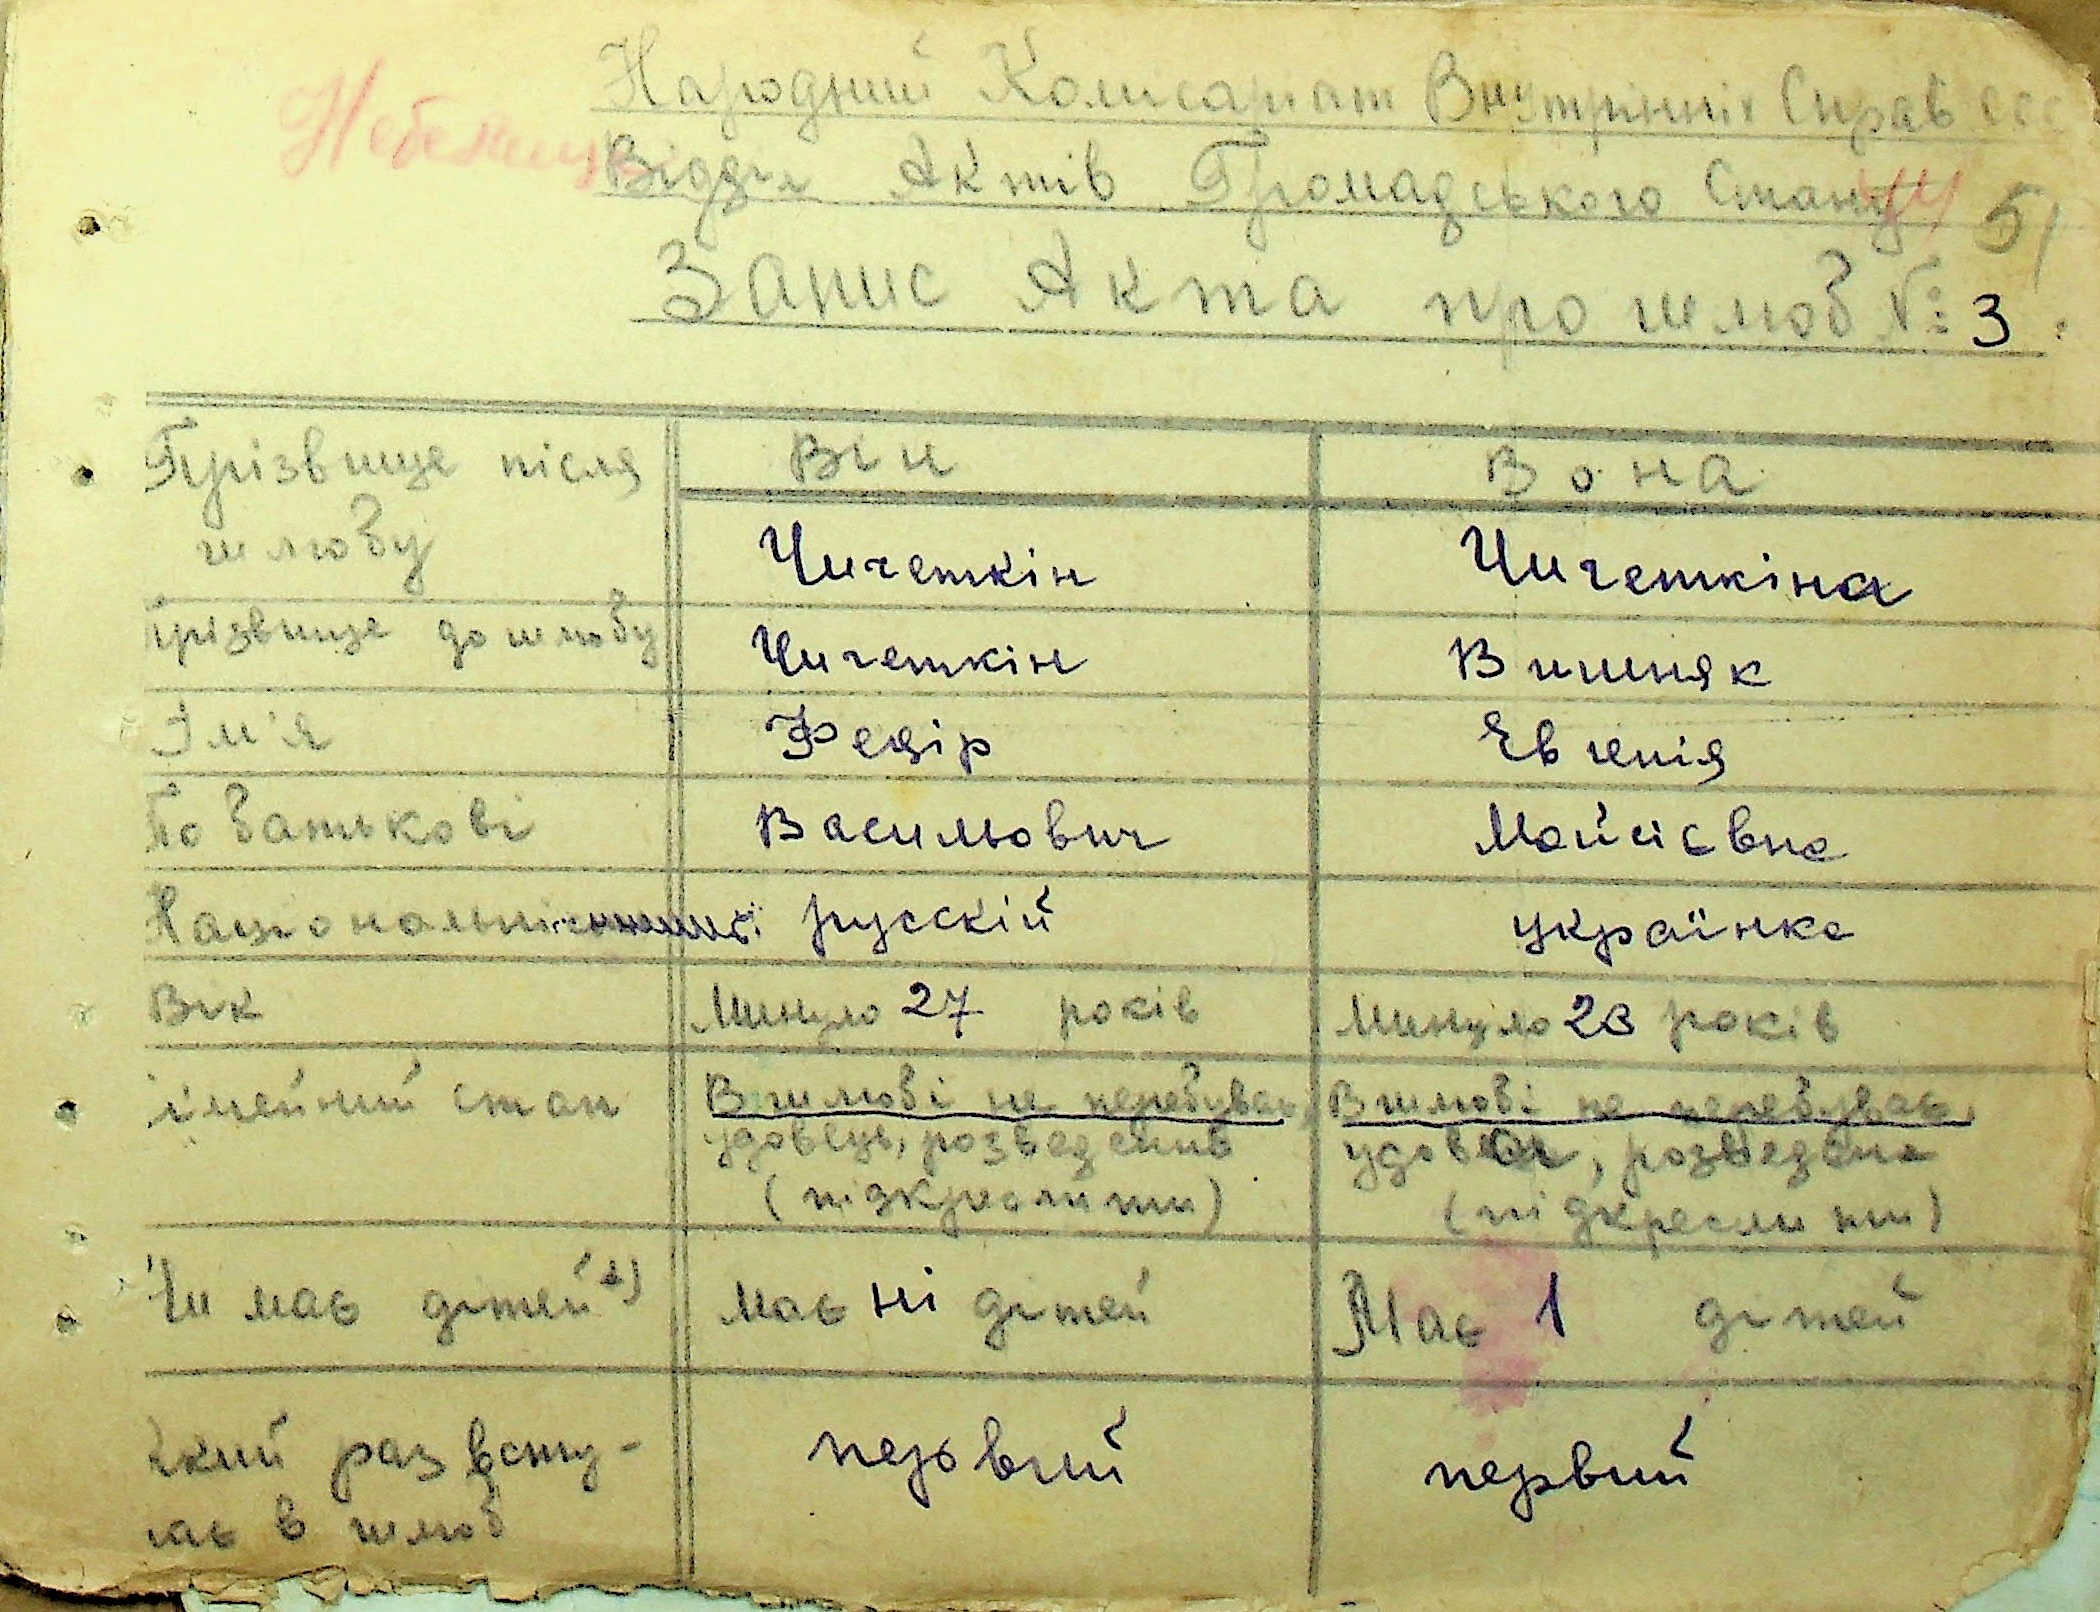 Народний Комісаріат Внутрішніх Справ ССС
Відділ Актів Громадського Стану 51
Запис Акта про шлюб № 3.
Прізвище після шлюбу Він Вона
Чичеткін Чичеткіна
Прізвище до шлюбу Чичеткін Вишняк
Ім'я Федір Євгенія
По батькові Васильович Мойсієвна
Національність русскій українка
Вік Минуло 27 років Минуло 23 років
імейний стан В шлюбі не перебував, В шлюбі не перебуває,
удовець, розведений удова, розведена
(підкреслити) (підкреслити)
Чи має дітей 1) Має ні дітей Має 1 дітей
який раз всту- первий первий
пає в шлюб